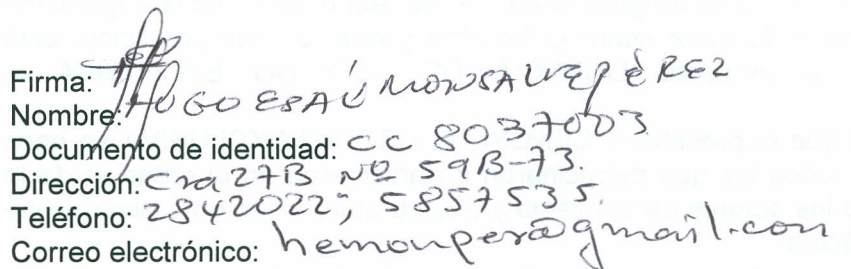 Firma:
Nombre: HUGO ESAÚ MONSALVE PÉREZ
Documento de identidad: CC 8037003
Dirección: Cra 27B No 59B-73.
Teléfono: 2842022; 5857535.
Correo electrónico: hemonpera@gmail.com